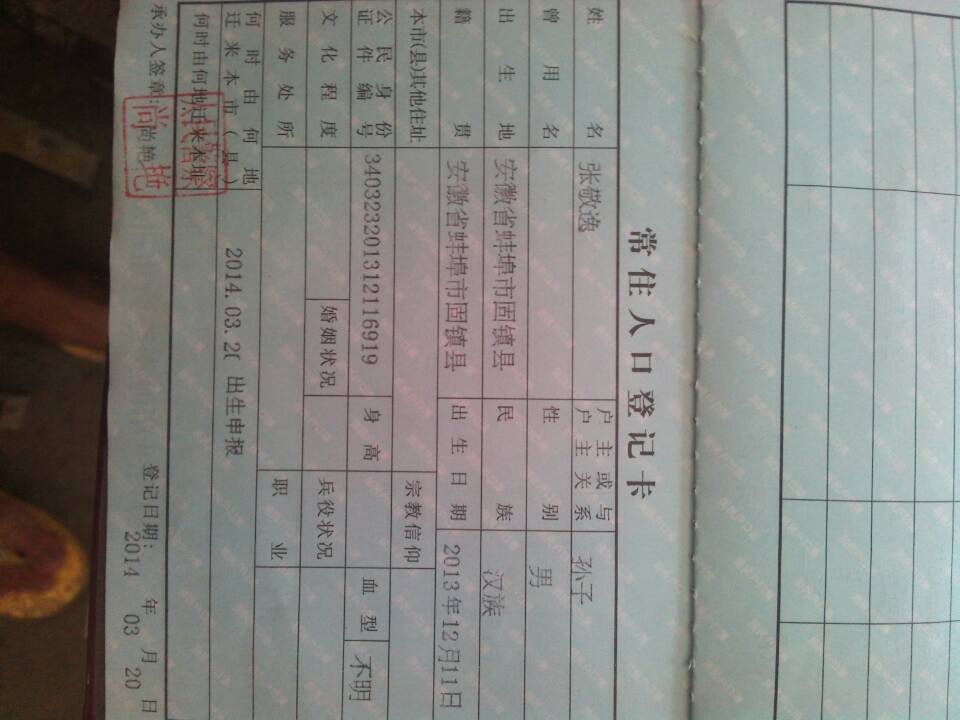 常住人口登记卡
姓 名 张敬逸 户主或与户主关系 孙子
曾用名 性别 男
出生地 安徽省蚌埠市固镇县 民族 汉族
籍贯 安徽省蚌埠市固镇县 出生日期 2013年12月11日
本市(县)其他住址 宗教信仰
公民身份证件编号 340323201312116919 身高 血型 不明
文化程度 婚姻状况 兵役状况
服务处所 职业
何时由何地迁来本市(县) 2014.03.2 出生申报
何时由何地迁来本址
承办人签章: 尚艳 登记日期: 2014 年 03 月 20 日